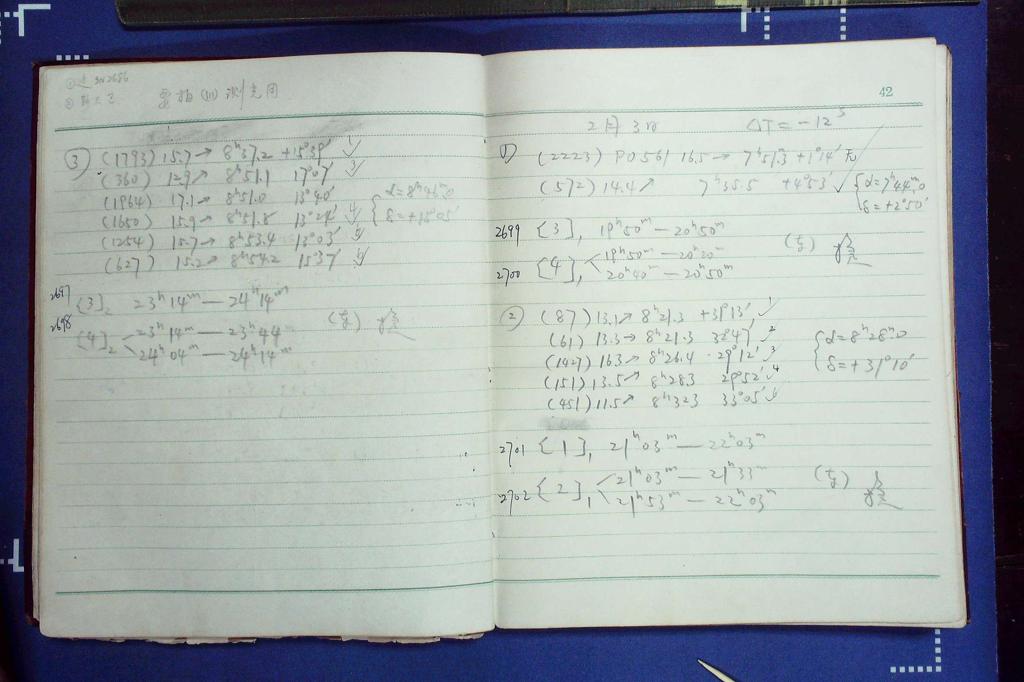 (1793) 15.7→ 8ʰ37.2 +15°39′ 1✓
③ (360) 12.9↗ 8ʰ51.1 17°07′ 3✓
(1964) 17.1→ 8ʰ51.0 13°40′
(1650) 15.9→ 8ʰ51.8 13°24′ 4✓
(1254) 15.7→ 8ʰ53.4 13°03′ 5✓
(627) 15.2→ 8ʰ54.2 15°37′ 6✓
δ=+15°05′
2697 [3]₂ 23ʰ14ᵐ—24ʰ14ᵐ
2698 [4]₂ 23ʰ14ᵐ—23ʰ44ᵐ
24ʰ04ᵐ—24ʰ14ᵐ
42
2月3日 ΔT=-12ˢ
① (2223) PO561 16.5→ 7ʰ51.3 +1°14′ 无
(572) 14.4↗ 7ʰ35.5 +4°53′ ✓ {α=7ʰ44ᵐ.0
δ=+2°50′
2699 [3]₁ 19ʰ50ᵐ—20ʰ50ᵐ
2700 [4]₁ 19ʰ50ᵐ—20ʰ20ᵐ
20ʰ40ᵐ—20ʰ50ᵐ
② (87) 13.1↗ 8ʰ21.3 +31°13′ 1✓
(61) 13.3→ 8ʰ21.3 32°47′ 2✓
(1427) 16.3↗ 8ʰ26.4 29°12′ 3✓
(151) 13.5↗ 8ʰ28.3 29°52′ 4✓
(451) 11.5↗ 8ʰ32.3 33°05′ ✓
{α=8ʰ28ᵐ.0
δ=+31°10′
2701 [1]₁ 21ʰ03ᵐ—22ʰ03ᵐ
2702 [2]₁ 21ʰ03ᵐ—21ʰ33ᵐ
21ʰ53ᵐ—22ʰ03ᵐ